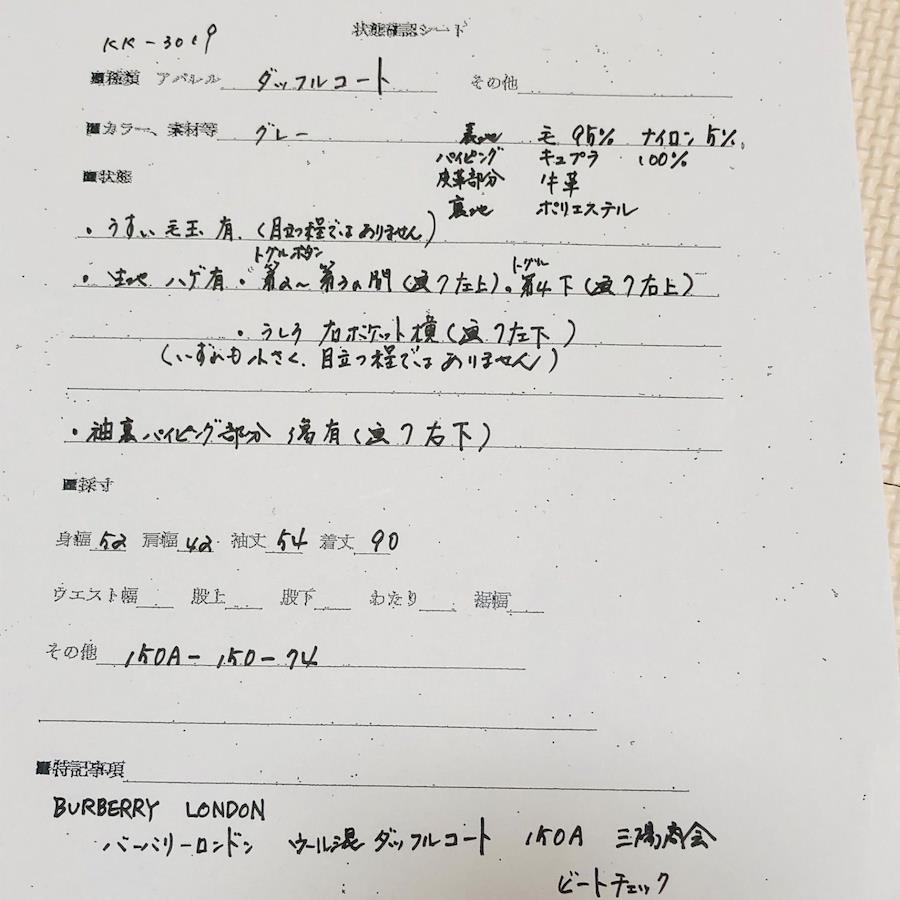 状態確認シート
KK-3019
■種類 アパレル ダッフルコート その他
■カラー、素材等 グレー 表地 毛 95% ナイロン 5%
パイピング キュプラ 100%
■状態 皮革部分 牛革
裏地 ポリエステル
・うすい毛玉有.(目立つ程ではありません)
トグルボタン トグル
・生地 ハゲ有・第2〜第3の間(画7左上)。第4下(画7右上)
・うしろ 右ポケット横(画7左下)
(いずれも小さく、目立つ程ではありません)
・袖裏パイピング部分 傷有(画7右下)
■採寸
身幅 52 肩幅 42 袖丈 54 着丈 90
ウエスト幅 股上 股下 わたり 裾幅
その他 150A-150-74
■特記事項
BURBERRY LONDON
バーバリーロンドン ウール混 ダッフルコート 150A 三陽商会
ビートチェック